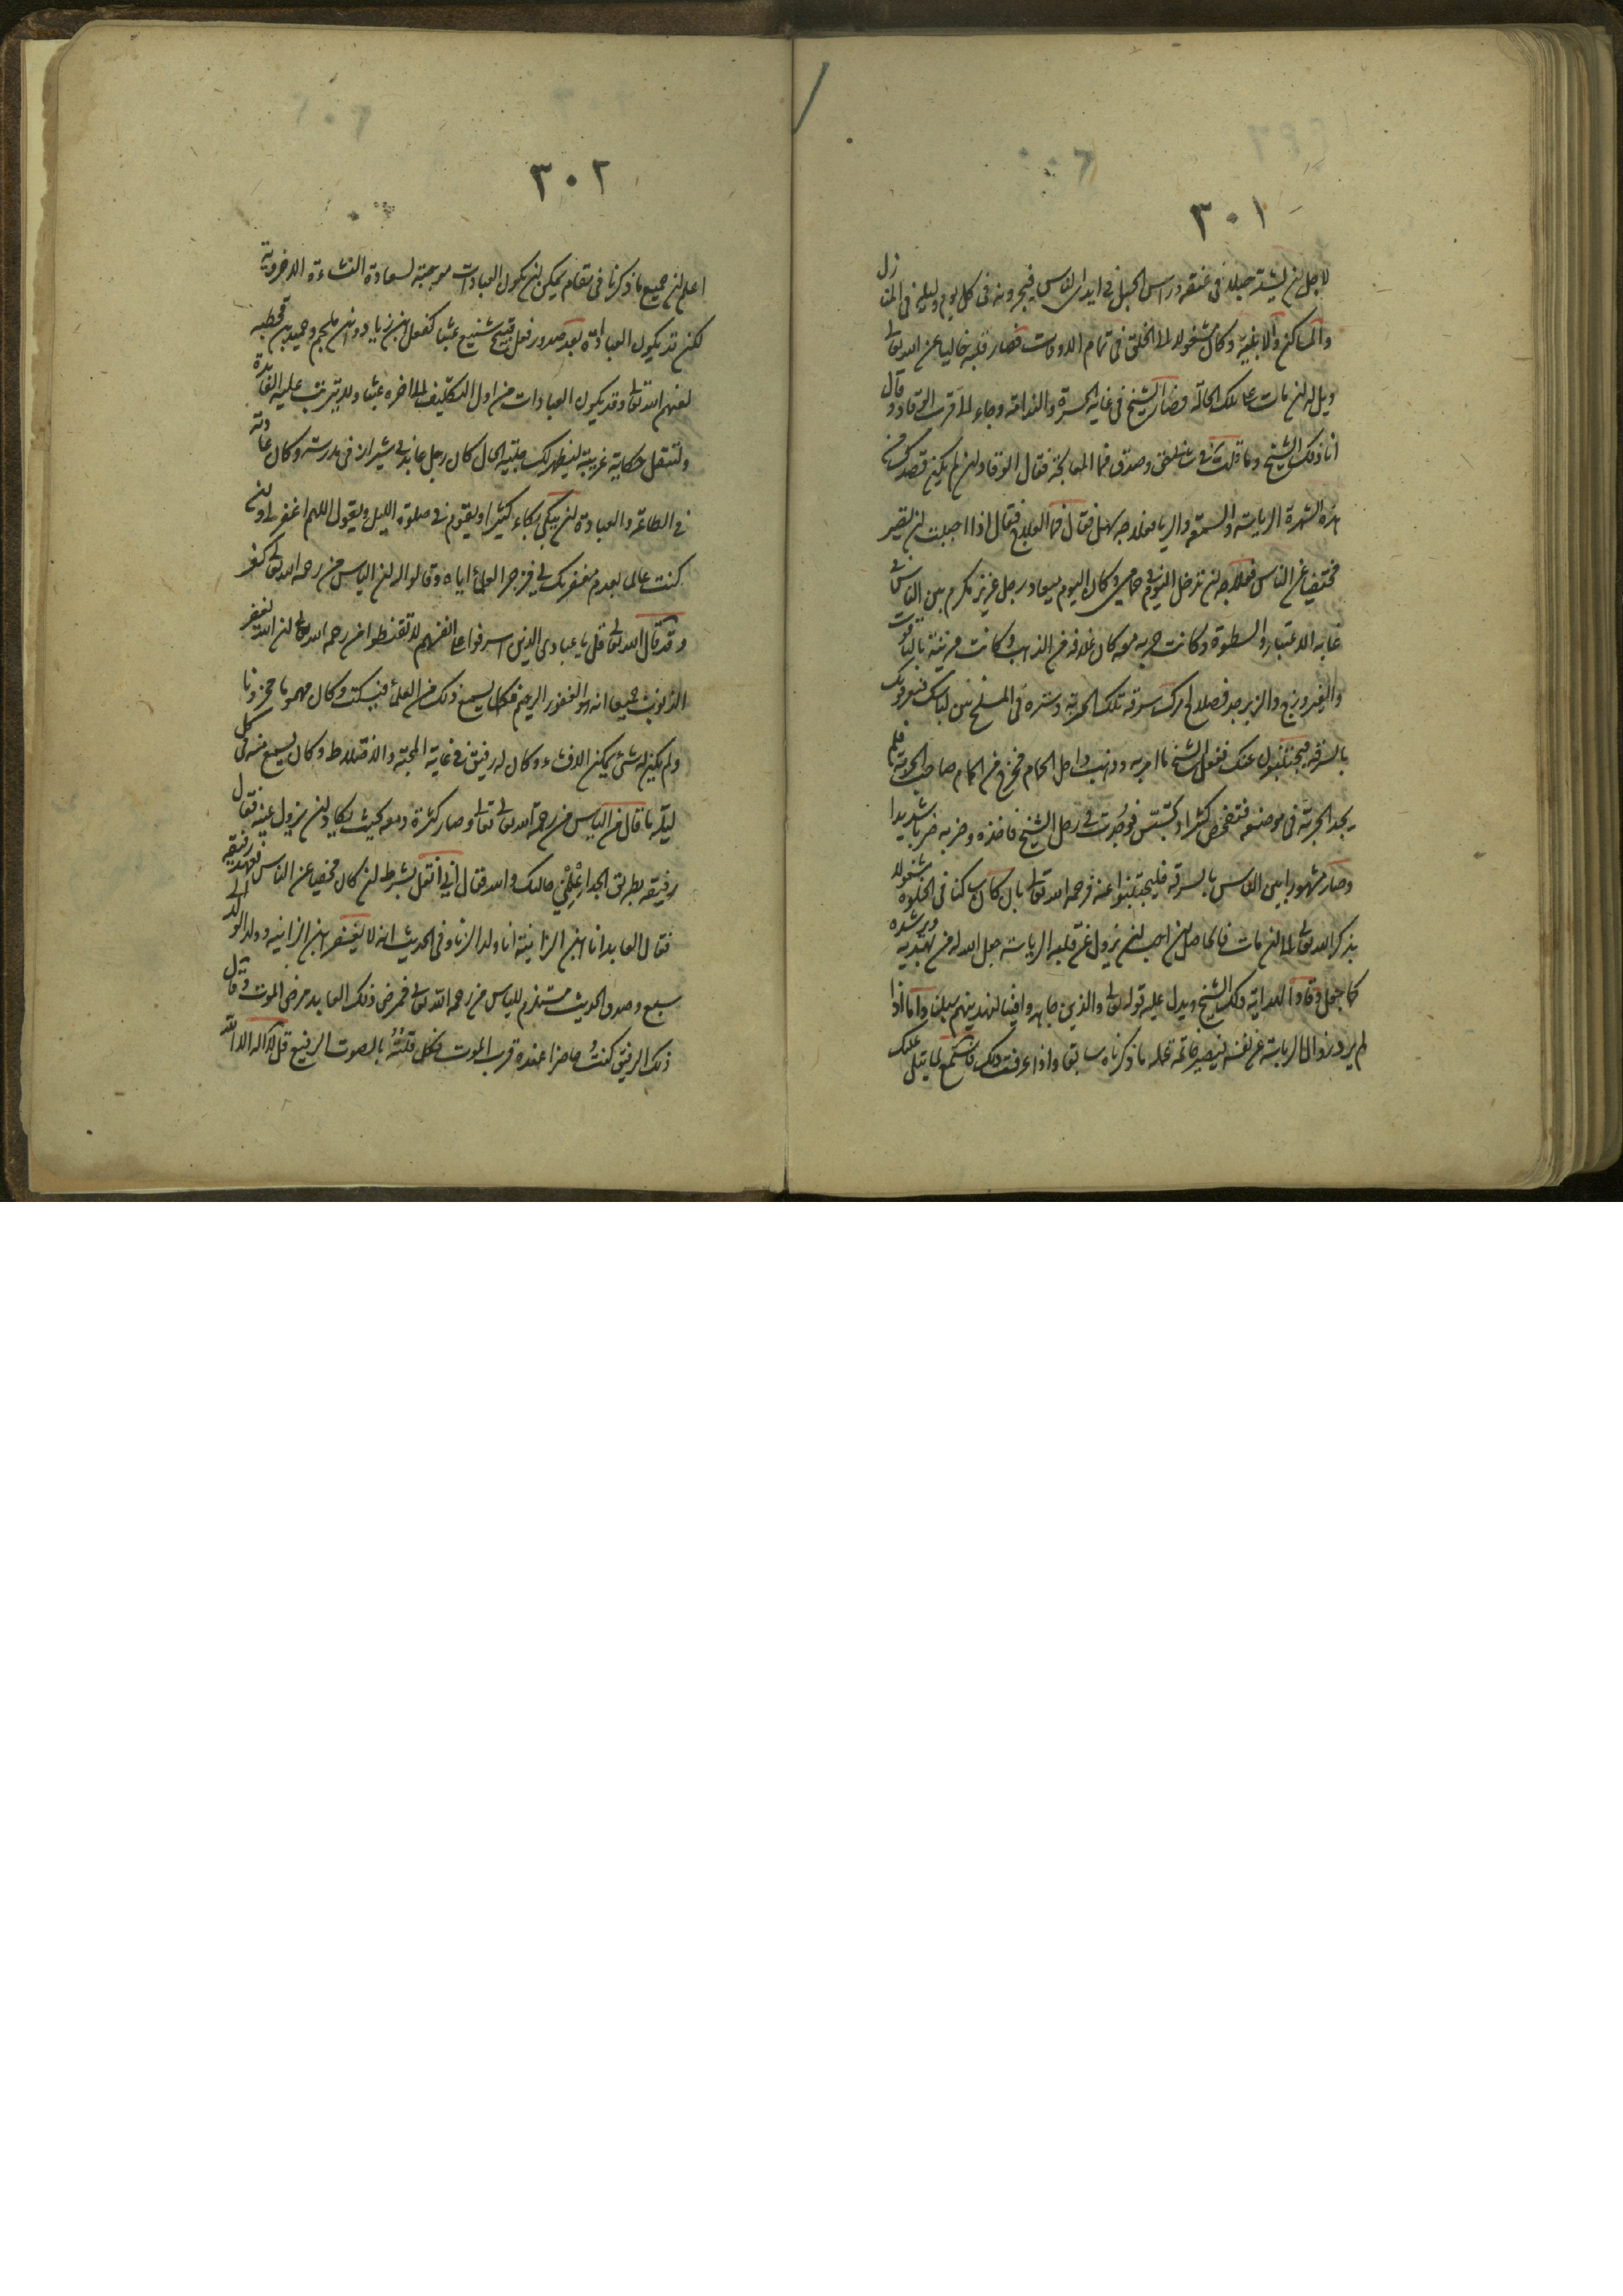 ٣٠١
لاجل ان يشد حبلا فى عنقه وراس الحبل فى ايدى الناس فيجرونه فى كل يوم وليلة فى المنازل
والمساكن والابنية وكان مشغولا الى الخلق فى تمام الاوقات فصار قلبه خاليا عن الله تعالى
ويل له ان مات على تلك الحالة فصار الشيخ فى غاية الحسرة والندامة وجاء الى قرب الوقاد وقال
انا ذلك الشيخ وما قلت فى وصدق فما المعالجة فقال الوقاد ان لم يكن قصدك من
هذه الشهرة الرياسة والسمعة والريا فعلاجه سهل فقال فما العلاج فقال اذا احببت ان تصير
مختفيا عن الناس فعلاجه ان تدخل اليوم فى حمامى وكان اليوم ميعاد رجل عزيز مكرم بين الناس فى
غاية الاعتبار والسطوة وكانت حربة معه كان غلافه من الذهب وكانت مزينة بالياقوت
والفيروزج والزبرجد فصلاح امرك سرقة تلك الحربة وستره فى المسلخ بين لباسك فيعرفونك
بالسرقة فيجتنبون عنك ففعل الشيخ ما امر به وذهب داخل الحمام فخرج من الحمام صاحب الحربة فلم
يجد الحربة فى موضعه فتفحص كثيرا وتجسس فوجدت فى رحل الشيخ فاخذه وضربه ضربا شديدا
وصار مشهورا بين الناس بالسرقة فليجتنبوا عنه فرحمه الله تعالى بان كان ساكنا فى الخلوة مشغولا
بذكر الله تعالى الى ان مات فالحاصل ان احب ان يزول عن قلبه الرياسة جعل الله له من يهديه ويرشده
كما جعل وقادا لهداية ذلك الشيخ ويدل عليه قوله تعالى والذين جاهدوا فينا لنهدينهم سبلنا واما اذا
لم يرد زوال الرياسة عن نفسه ليصير خاتمة عمله ما ذكرناه سابقا واذا عرفت ذلك فاستمع لما يتلى عليك
٣٠٢
اعلم ان جميع ما ذكرنا فى مقام يمكن ان يكون العبادات موجبة لسعادة النشاءة الاخروية
لكن قد يكون العبادة بعد صدور فعل قبيح شنيع عبثا كفعل ابن زياد وابن ملجم وحميد بن قحطبه
لعنهم الله تعالى وقد يكون العبادات من اول التكليف الى اخره عبثا ولا يترتب عليه الفائدة
ولننقل حكاية غريبة ليظهر لك جلية الحال كان رجل عابد فى شيراز فى مدرسة وكان عادته
فى الطاعة والعبادة ان يبكى بكاء كثيرا ويقوم فى صلوة الليل ويقول اللهم اغفر لى وان
كنت عالما بعدم مغفرتك لى فزجر العلماء اياه وقالوا له ان الياس من رحمة الله تعالى كفر
وقد قال الله تعالى قل يا عبادى الذين اسرفوا على انفسهم لا تقنطوا من رحمة الله تعالى ان الله يغفر
الذنوب جميعا انه هو الغفور الرحيم فكلما يسمع ذلك من العلماء فيسكت وكان مهموما محزونا
ولم يكن له شئ يمكن الافشاء وكان له رفيق فى غاية المحبة والاختلاط وكان يسمع منه فى كل
ليلة ما قال من الياس من رحمة الله تعالى وصار كثرة دمعه بحيث يكاد ان يزول عينه فقال
رفيقه بطريق الجد اعلمنى حالك والله فقال انى انقل بشرط ان كان مخفيا عن الناس فعهد رفيقه
فقال العابد انا ابن الزانية انا ولد الزنا وفى الحديث انه لا يغفر ابن الزانية وولد الولد الى
سبع وصدق الحديث مستلزم للياس من رحمة الله تعالى فمرض ذلك العابد مرض الموت وقال
ذلك الرفيق كنت حاضرا عنده قرب الموت فكل قلته بالصوت الرفيع قل لا اله الا الله